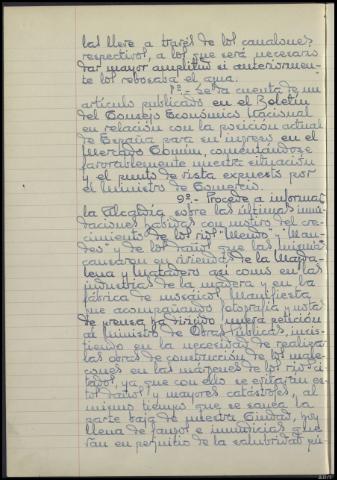 las lleve a través de los canalones
respectivos, a los que será necesario
dar mayor amplitud si anteriormen-
te los rebosaba el agua.
8º.- Se da cuenta de un
artículo publicado en el Boletín
del Consejo Económico Nacional
en relación con la posición actual
de España para su ingreso en el
Mercado Común, comentándose
favorablemente nuestra situación
y el punto de vista expuesto por
el Ministro de Comercio.
9º.- Procede a informar
la Alcaldía sobre las últimas inun-
daciones habidas con motivo del cre-
cimiento de los ríos "Mendo" y "Man-
deo" y de los daños que las mismas
causaron en viviendas de la Magda-
lena y Matadero así como en las
industrias de la madera y en la
fábrica de mosaicos. Manifiesta
que acompañando fotografía y notas
de prensa ha dirigido nueva petición
al Ministro de Obras Públicas, insis-
tiendo en la necesidad de realizar
las obras de construcción de los male-
cones en las márgenes de los ríos ci-
tados, ya que con ello se evitarán es-
tos daños y mayores catástrofes, al
mismo tiempo que se sanea la
parte baja de nuestra Ciudad, hoy
llena de fangos e inmundicias que
van en perjuicio de la salubridad pú-